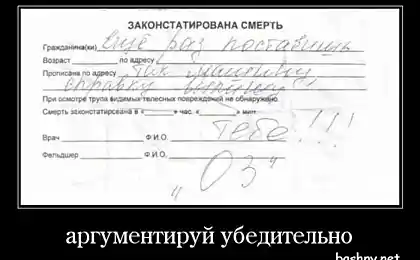 ЗАКОНСТАТИРОВАНА СМЕРТЬ
Гражданина(ки) Ещё раз поставишь
Возраст по адресу
Прописана по адресу так машину,
справку выпишу
При осмотре трупа видимых телесных повреждений не обнаружено.
Смерть законстатирсвана в « » час. « » мин.
Тебе!!!
Врач Ф.И.О.
Фельдшер Ф.И.О.
"03"
аргументируй убедительно
bashny.net